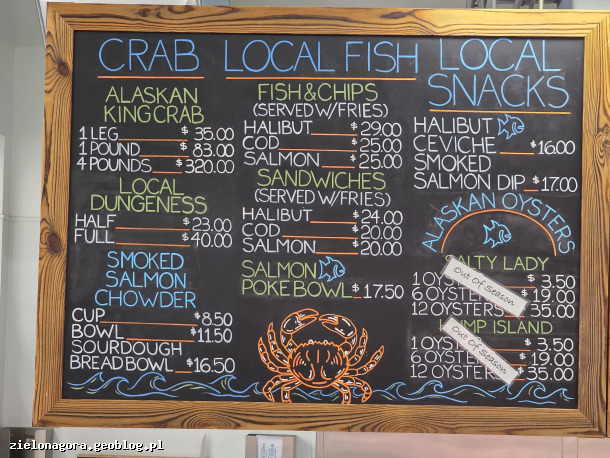 CRAB
ALASKAN
KING CRAB
1 LEG $35.00
1 POUND $83.00
4 POUNDS $320.00
LOCAL
DUNGENESS
HALF $23.00
FULL $40.00
SMOKED
SALMON
CHOWDER
CUP $8.50
BOWL $11.50
SOURDOUGH
BREAD BOWL $16.50
LOCAL FISH
FISH & CHIPS
(SERVED W/FRIES)
HALIBUT $29.00
COD $25.00
SALMON $25.00
SANDWICHES
(SERVED W/FRIES)
HALIBUT $24.00
COD $20.00
SALMON $20.00
SALMON
POKE BOWL $17.50
LOCAL
SNACKS
HALIBUT
CEVICHE $16.00
SMOKED
SALMON DIP $17.00
ALASKAN OYSTERS
SALTY LADY
1 OYSTER $3.50
6 OYSTERS $19.00
12 OYSTERS $35.00
Out Of Season
ISLAND
1 OYSTER $3.50
6 OYSTERS $19.00
12 OYSTERS $35.00
Out Of Season
zielonagora.geoblog.pl